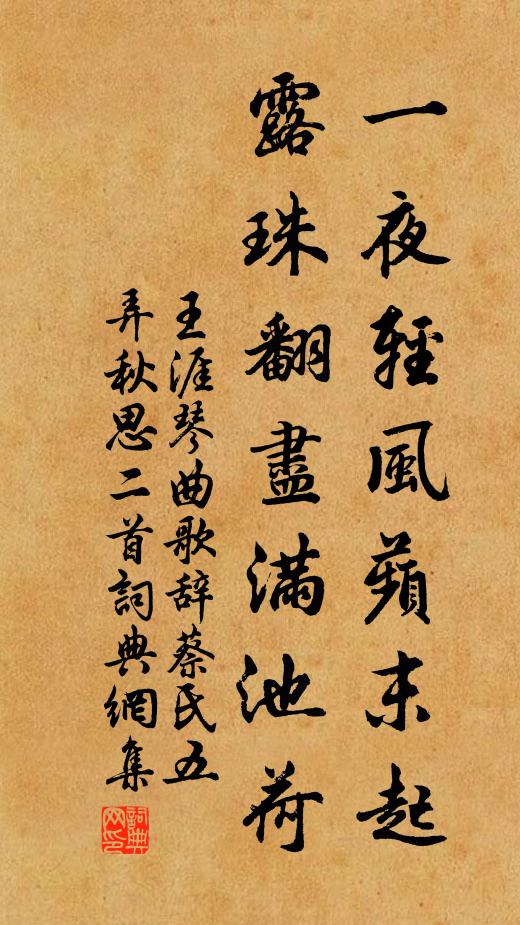 一夜輕風蘋末起
露珠翻盡滿池荷
王涯琴曲歌辞蔡氏五
弄秋思二首詞典網集
詞典网印